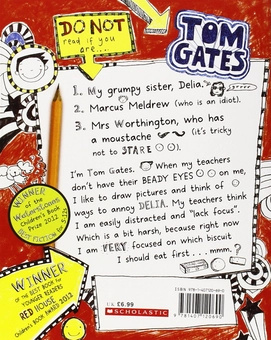 DO NOT
read if you
are...
TOM
GATES
1. My grumpy sister, Delia.
2. Marcus Meldrew (who is an idiot).
3. Mrs Worthington, who has
a moustache (it's tricky
not to STARE).
I'm Tom Gates. When my teachers
don't have their BEADY EYES on me,
I like to draw pictures and think of
ways to annoy DELIA. My teachers think
I am easily distracted and "lack focus".
Which is a bit harsh, because right now
I am VERY focused on which biscuit
I should eat first....mmm. ?
WINNER
of the
Waterstones
Children's Book
Prize 2012
BEST FICTION for 5-12s
WINNER
OF THE BEST BOOK FOR
YOUNGER READERS
RED HOUSE
CHILDREN'S BOOK AWARD 2012
UK £6.99
SCHOLASTIC